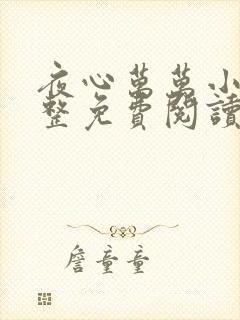 夜心萬萬小
整免費閱讀
詹童童